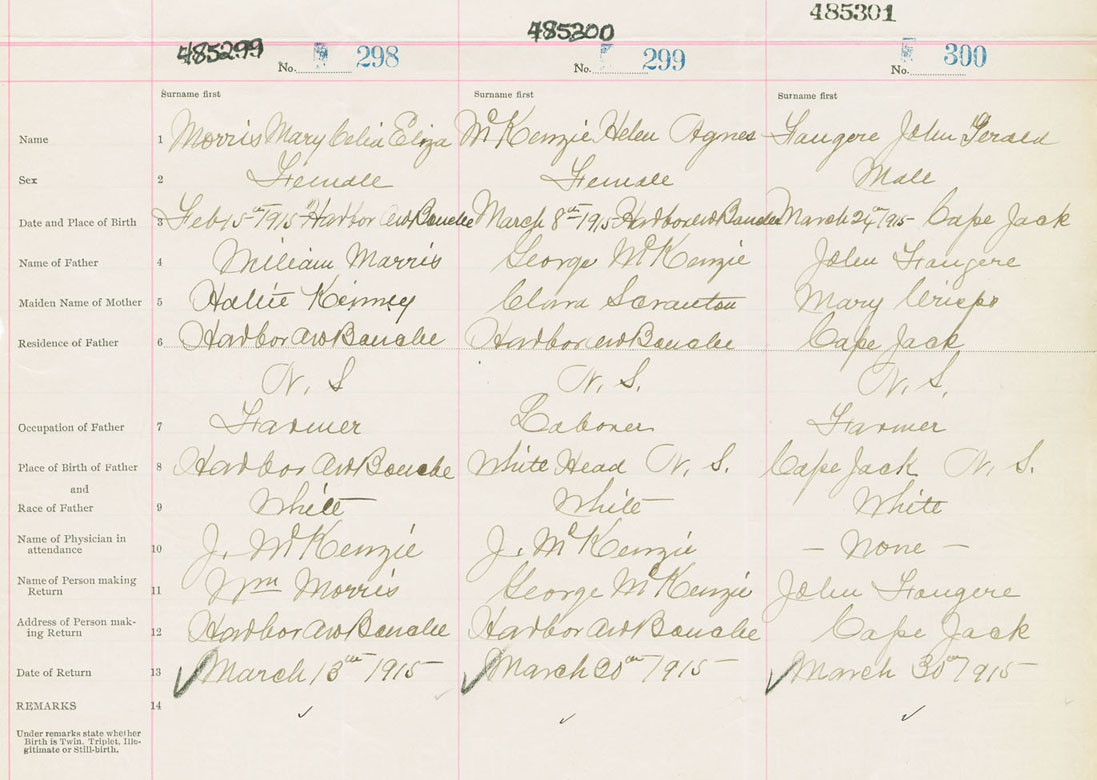 485299 485300 485301
No. 298 No. 299 No. 300
Surname first Surname first Surname first
Name 1 Morris Mary Celia Eliza McKenzie Helen Agnes Faugere John Gerald
Sex 2 Female Female Male
Date and Place of Birth 3 Feb 15th 1915 Harbor au Bouche March 8th 1915 Harbor au Bouche March 24th 1915 Cape Jack
Name of Father 4 William Morris George McKenzie John Faugere
Maiden Name of Mother 5 Hattie Kinney Clara Scranton Mary Crispo
Residence of Father 6 Harbor au Bouche Harbor au Bouche Cape Jack
N. S N. S. N. S.
Occupation of Father 7 Farmer Laborer Farmer
Place of Birth of Father 8 Harbor au Bouche White Head N. S. Cape Jack N. S.
and
Race of Father 9 White White White
Name of Physician in
attendance 10 J. McKenzie J. McKenzie – None –
Name of Person making
Return 11 Wm Morris George McKenzie John Faugere
Address of Person mak-
ing Return 12 Harbor au Bouche Harbor au Bouche Cape Jack
Date of Return 13 March 13th 1915 March 20th 1915 March 30th 1915
REMARKS 14
Under remarks state whether
Birth is Twin. Triplet, Ille-
gitimate or Still-birth.